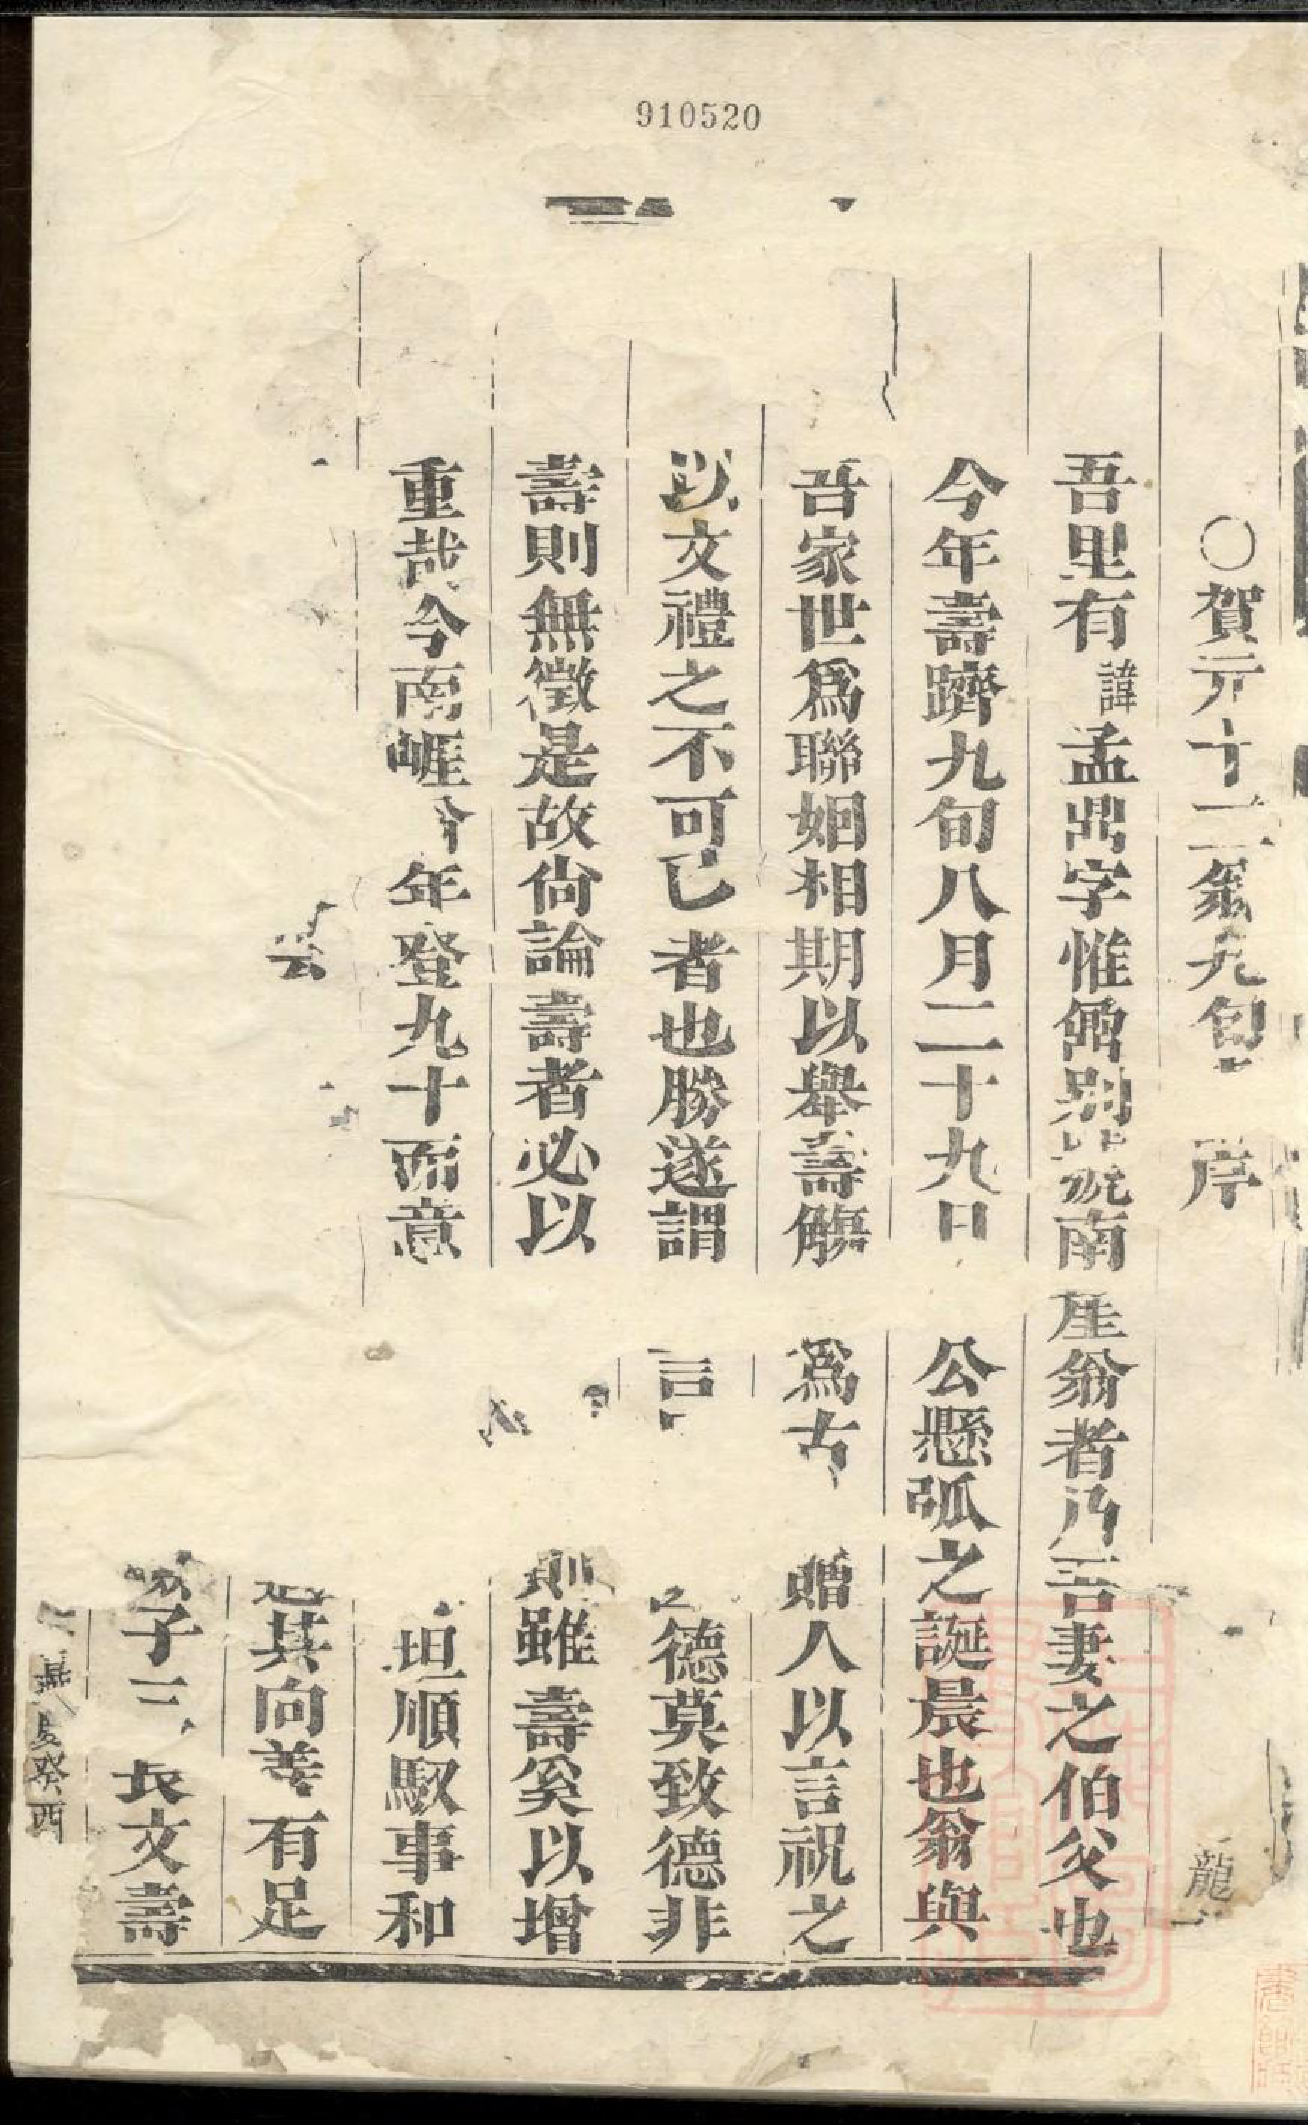 910520
○賀元十二翁九旬 序
龍
吾里有諱孟鼎字惟會別號南崖翁者乃吾妻之伯父也
今年壽躋九旬八月二十九日 公懸弧之誕晨也翁與
吾家世爲聯姻相期以舉壽觴 爲古 贈人以言祝之
以文禮之不可已者也勝遂謂 言 之德莫致德非
壽則無徵是故尙論壽者必以 則雖壽奚以增
重哉今南崕 年登九十而意 坦順馭事和
云 其向善有足
子三長文壽
癸酉